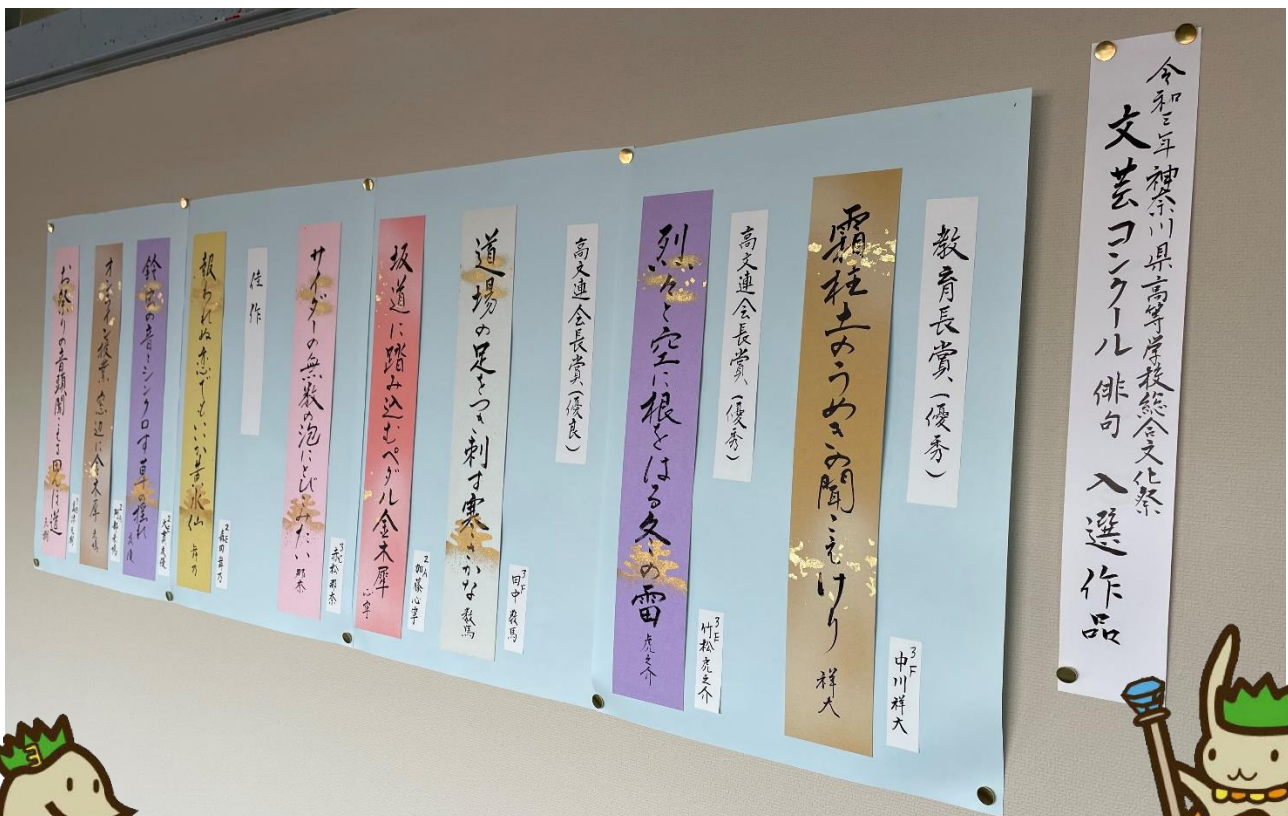 令和三年神奈川県高等学校総合文化祭
文芸コンクール 俳句 入選作品
教育長賞(優秀)
霜柱土のうめきの聞こえけり 祥大
3F 中川祥大
高文連会長賞(優秀)
烈々と空に根をはる冬の雷 虎之介
3E 竹松虎之介
高文連会長賞(優良)
道場の足をつき刺す寒さかな 駿馬
3F 田中駿馬
坂道に踏み込むペダル金木犀 心寧
2A 加藤心寧
サイダーの無数の泡にとびこみたい 那奈
赤松那奈
佳作
報われぬ恋でもいいの黄水仙
鈴虫の音とシンクロす草の揺れ
オンライン授業窓辺に金木犀
お祭りの音頭聞こえる